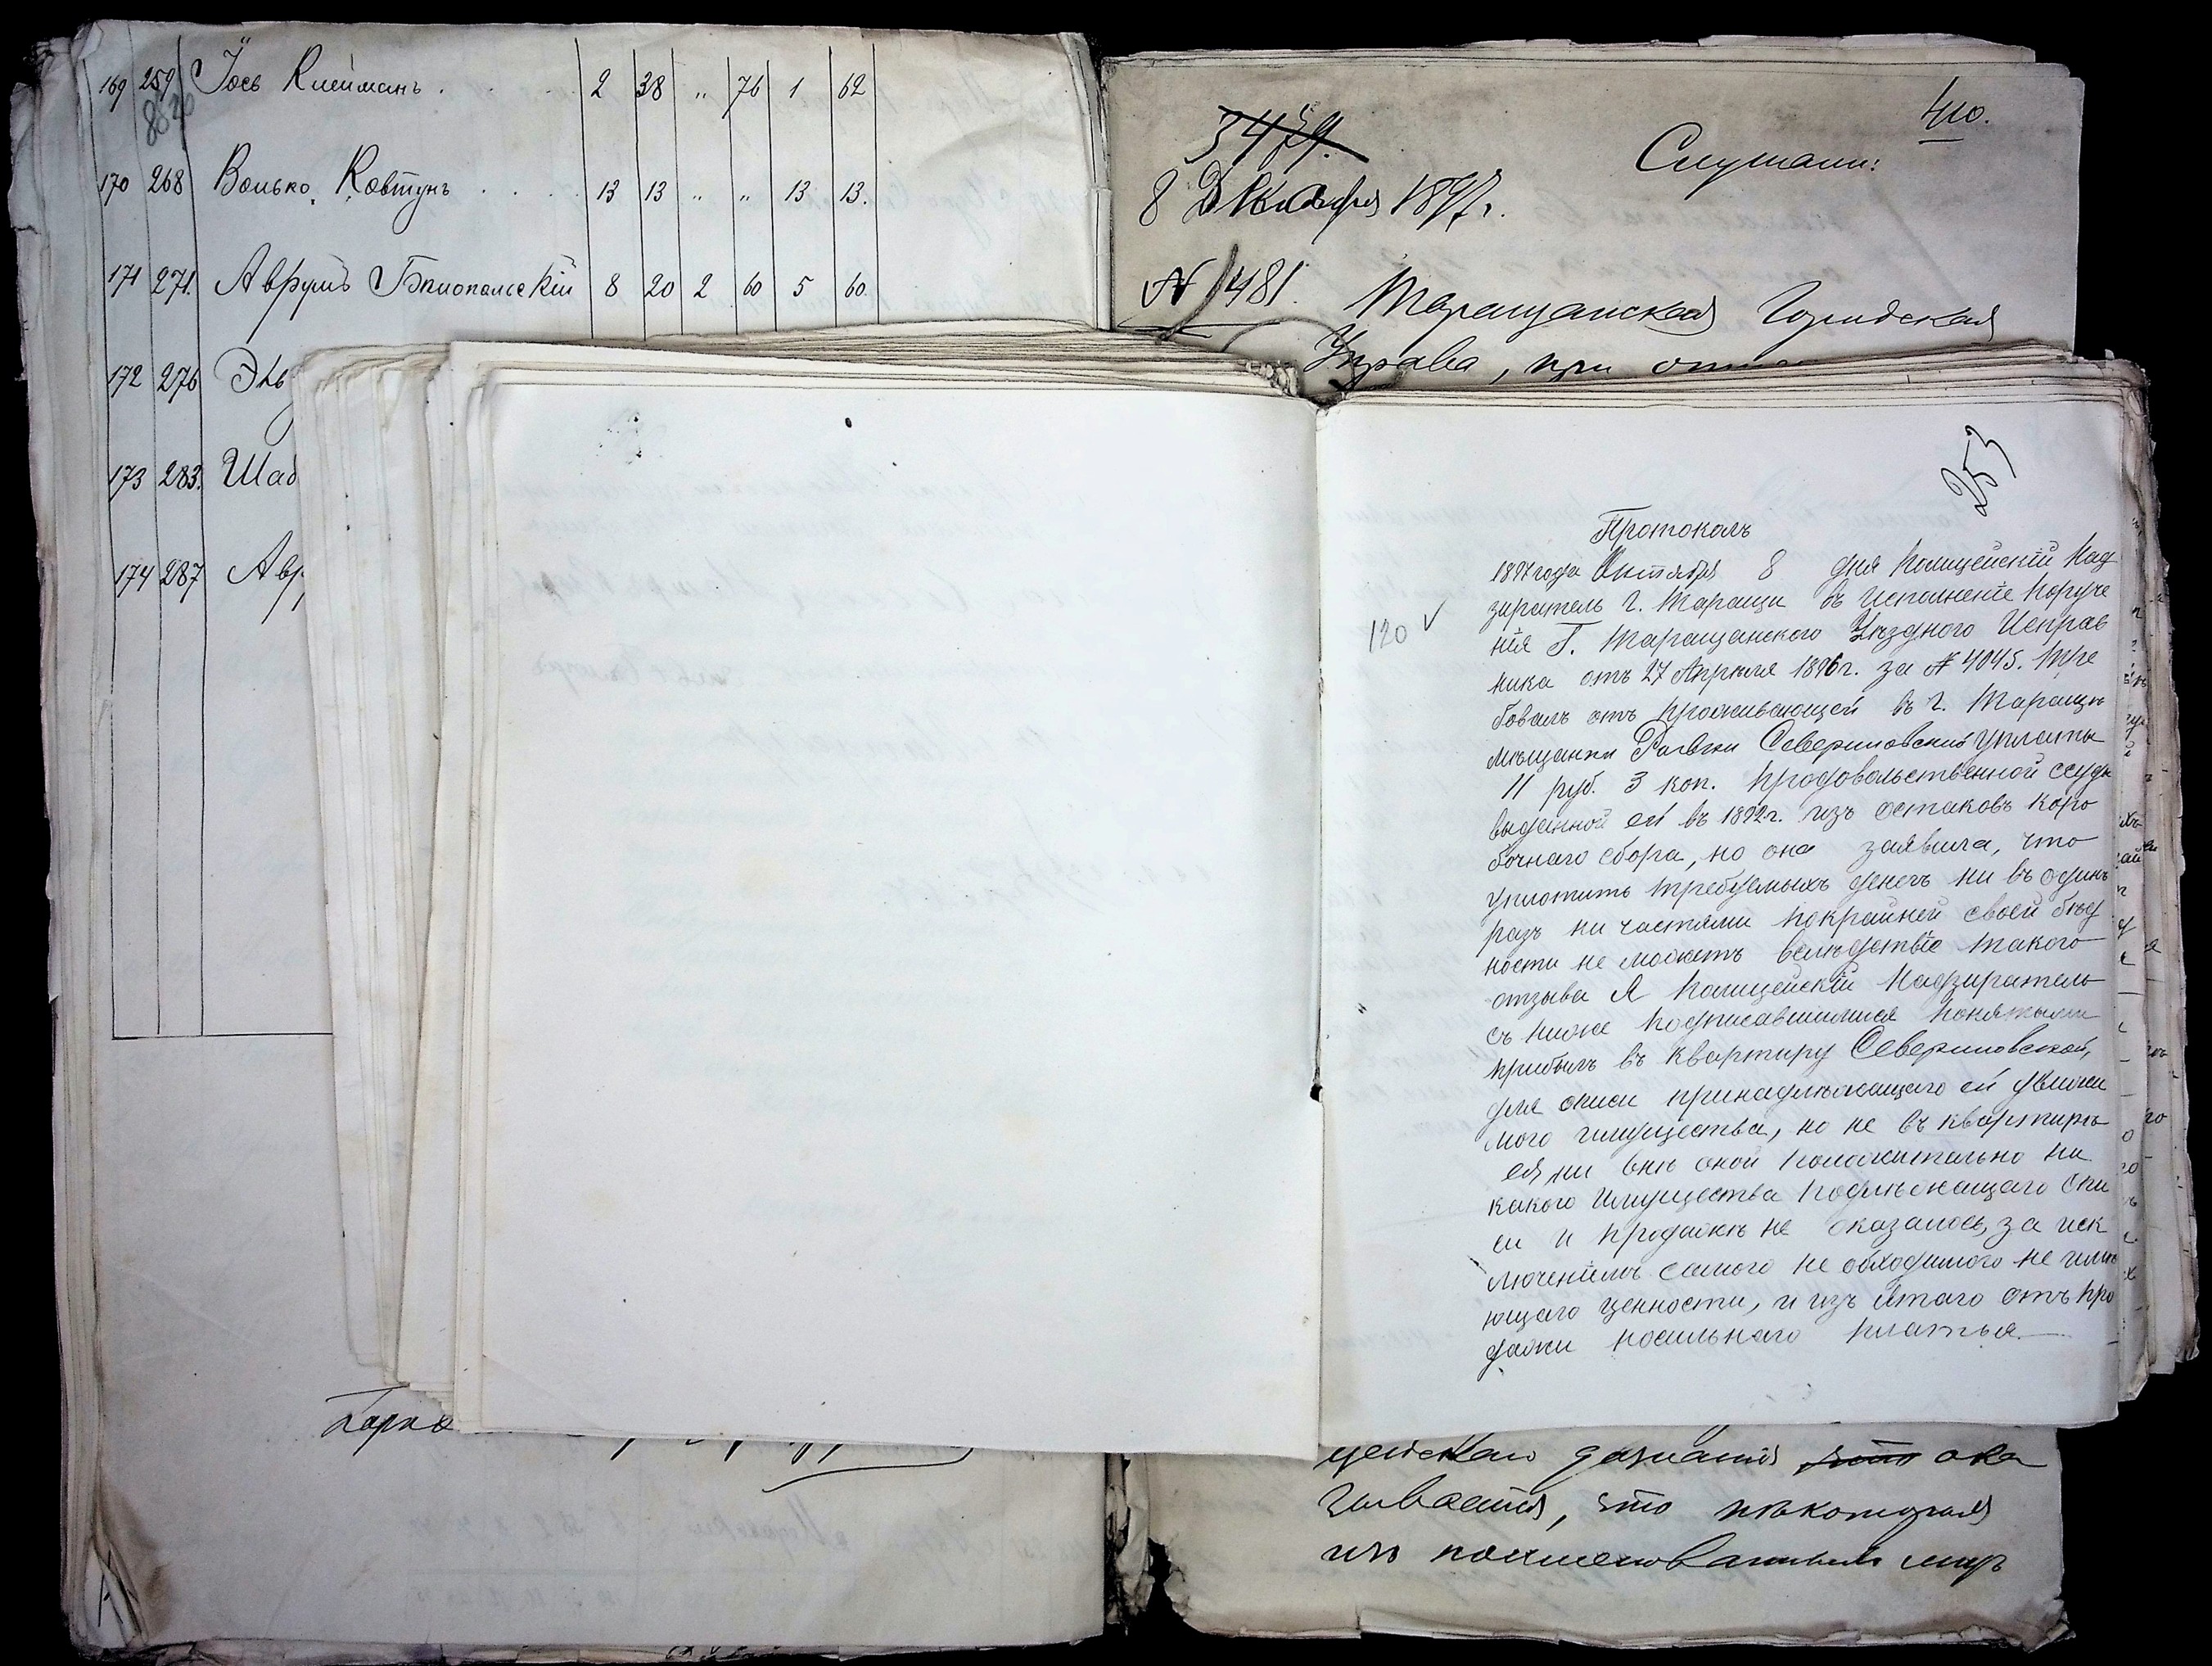 169 259 Іось Клейманъ . . . 2 38 „ 76 1 62
8820
170 268 Волько Ковтунъ . . . . 13 13 „ „ 13 13.
171 271. Аврумъ Бялопольскій 8 20 2 60 5 60
172 276
173 283. Шаб
174 287 Авр
410.
Слушали:
8 Декабря 1897 г.
N 1481.
Таращанская Городская
Управа, при
257
Протоколъ
1897 года Октября 8 дня Полицейскій Над
зиратель г. Таращи въ исполненіе поруче
нія Г. Таращанского Уѣзднаго Исправ
ника отъ 27 Апрѣля 1896 г. за № 4045. тре
120 √
бовалъ отъ проживающей въ г. Таращѣ
мѣщанки Ривки Севериновской уплаты
11 руб. 3 коп. продовольственной ссуды
выданной ей въ 1892 г. изъ остаковъ коро
бочнаго сбора, но она заявила, что
уплотить требуемыхъ денегъ ни въ одинъ
разъ ни частями покрайней своей бѣд
ности не можетъ вслѣдствіе такого
отзыва Я Полицейскій Надзиратель
съ ниже подписавшимися понятыми
прибылъ въ квартиру Севериновской,
для описи принадлѣжащаго ей движи
мого имущества, но не въ квартирѣ
ея, ни внѣ оной положительно ни
какого имущества подлѣжащаго опи
си и продажѣ не оказалось, за иск
люченіемъ самого не обходимого не имѣ
ющаго ценности, и изъ ятаго отъ про
дажи носильнаго платья.
дознанія что ока
зывается, что нѣкоторыя
изъ поименованныхъ лицъ